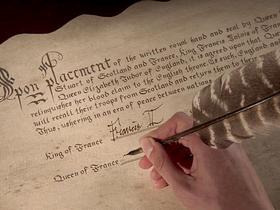 Upon placement of the written royal hand and seal by Queen
Stuart of Scotland and France, King Francis Valois of France
Queen Elizabeth Tudor of England, it is agreed upon that Queen
relinquishes her blood claim to the English throne. As such, England
will recall their troops from Scotland and return them to their
Thus, ushering in an era of peace between nations
King of France Francis II
Queen of France